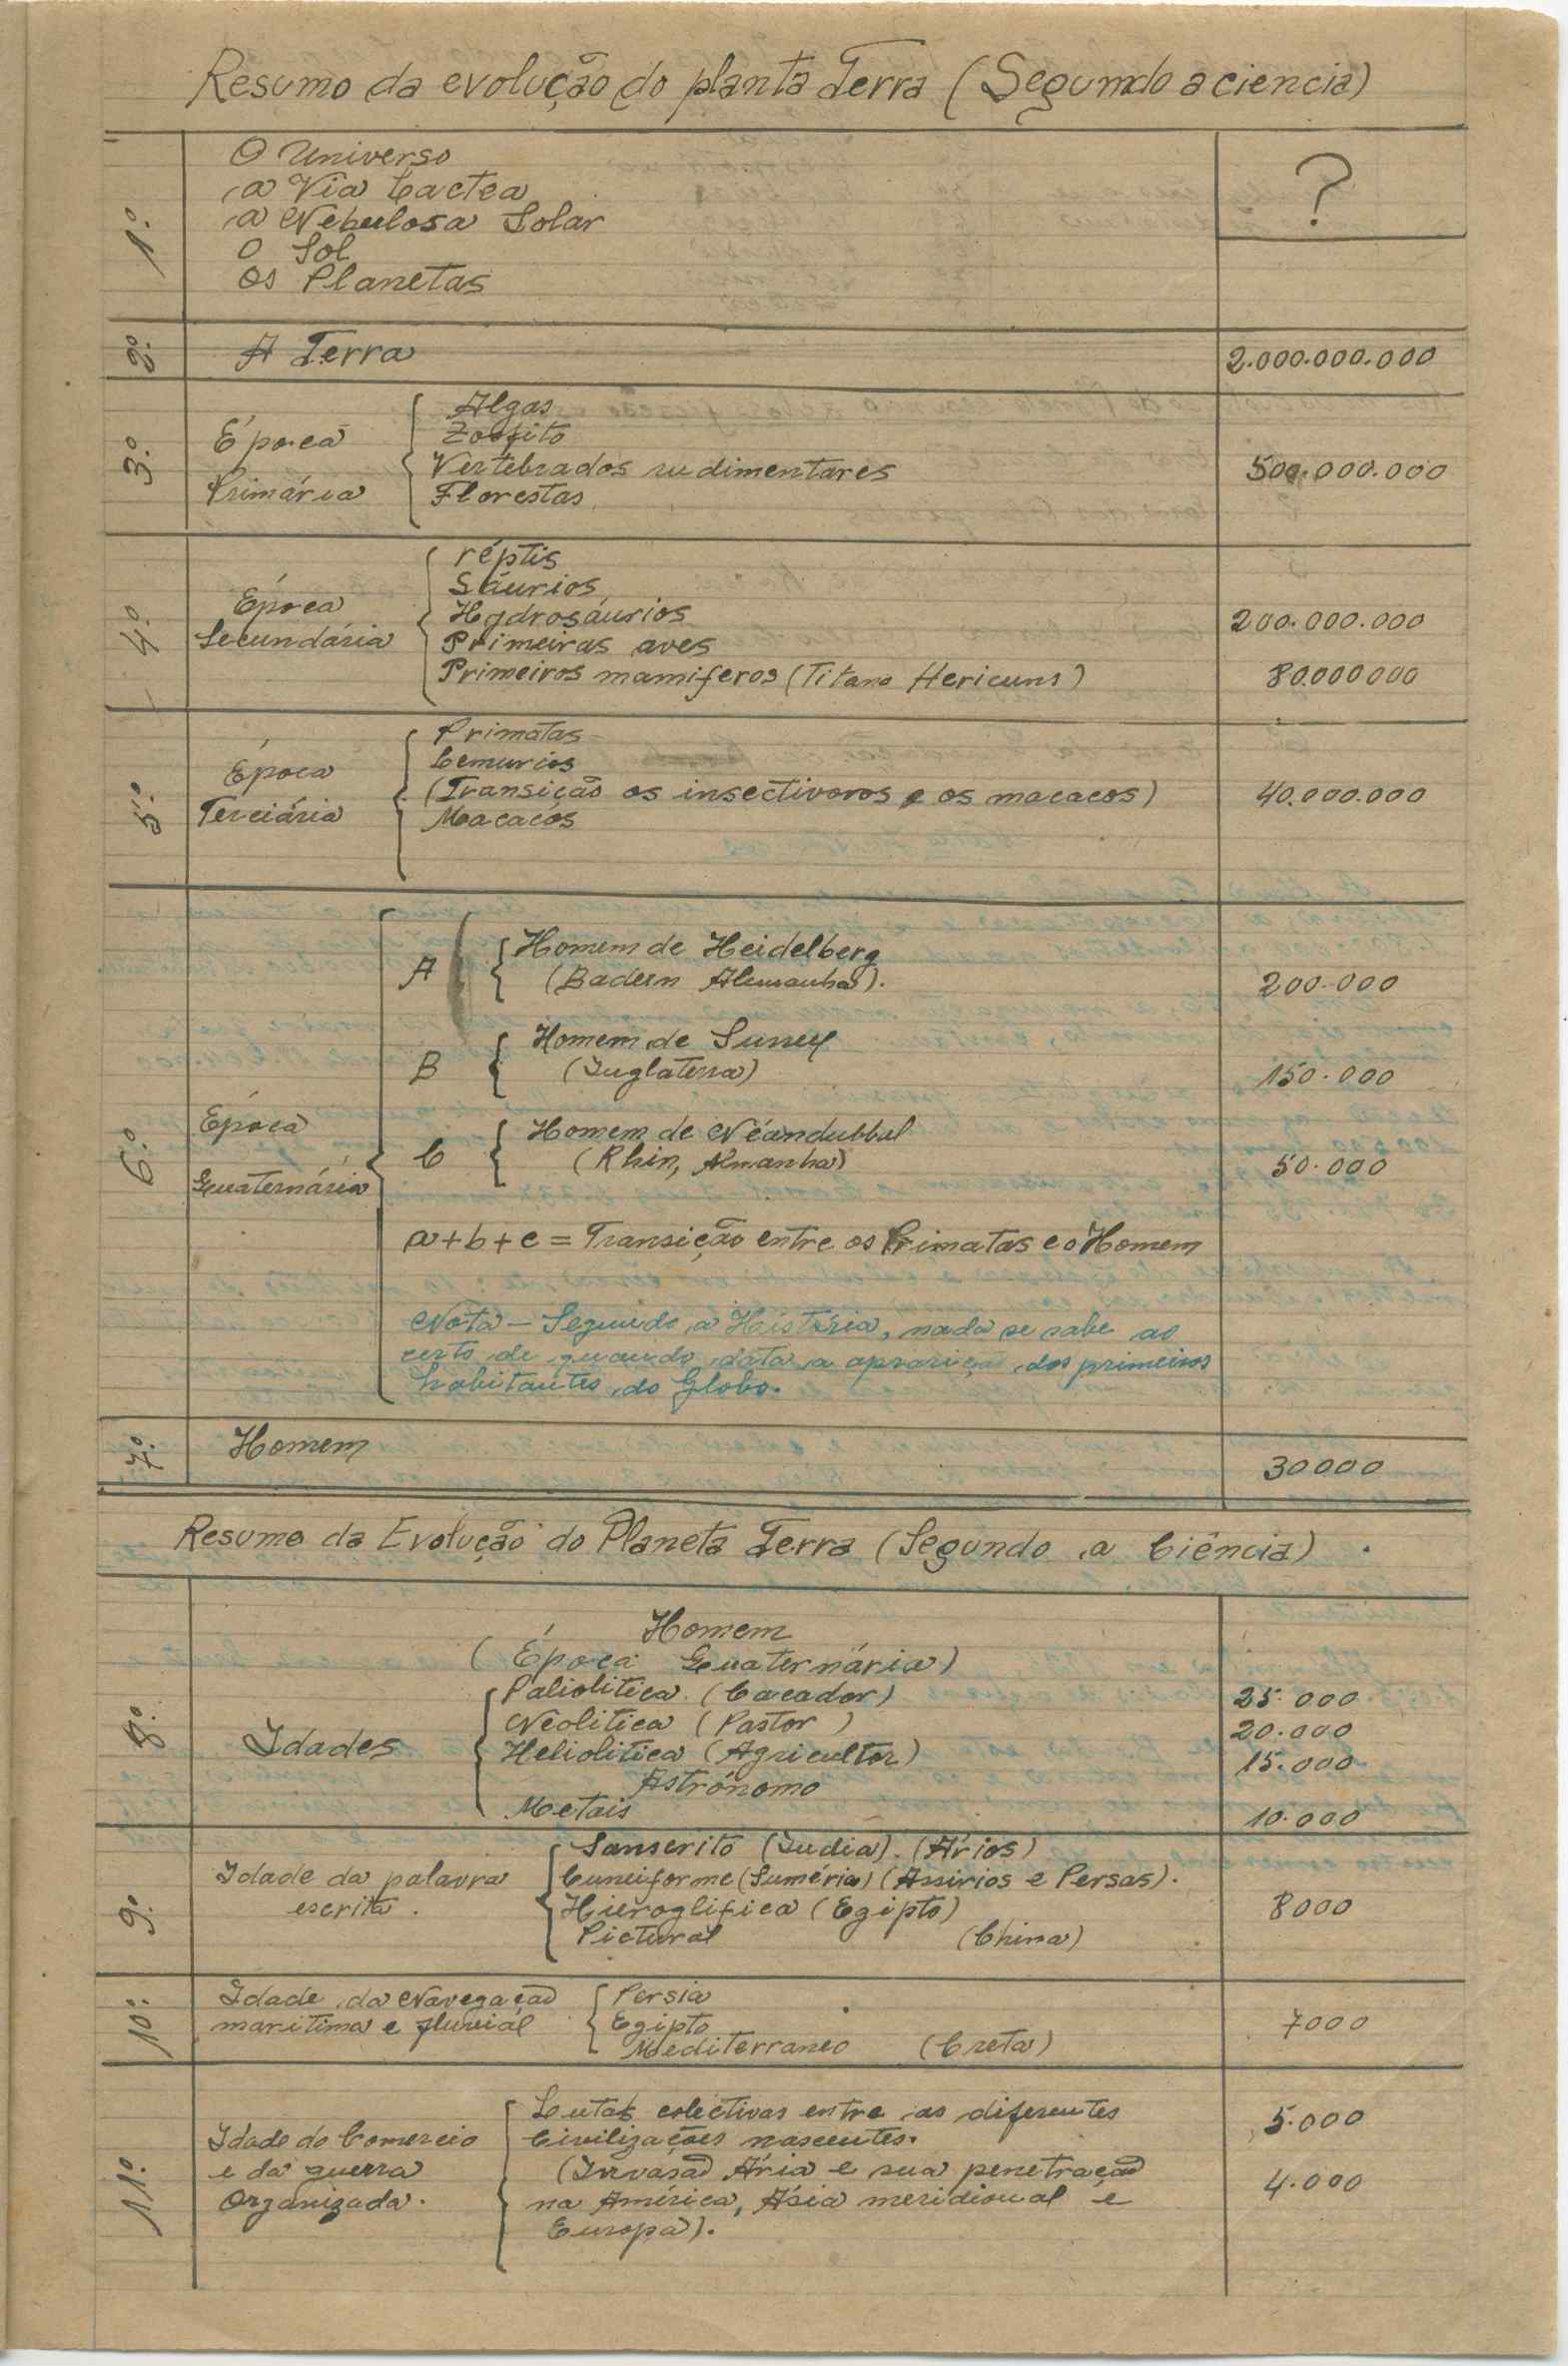 Resumo da evolução do planta Terra (Segundo a ciencia)
1.º
O Universo
a Via Lactea
a Nebulosa Solar
O Sol
Os Planetas
?
2.º
A Terra
2.000.000.000
3.º
Época
Primária
Algas
Zoófito
Vertebrados rudimentares
Florestas
500.000.000
4.º
Época
Secundária
réptis
Sáurios
Hydrosáurios
Primeiras aves
Primeiros mamiferos (Titano Hericuns)
200.000.000
80.000000
5.º
Época
Terciária
Primatas
Lemurios
(Transição os insectivoros e os macacos)
Macacos
40.000.000
6.º
Época
Quaternária
A
Homem de Heidelberg
(Badern Alemanha).
200.000
B
Homem de Surrey
(Inglaterra)
150.000
C
Homem de Néandubbul
(Rhin, Almanha)
50.000
a+b+c = Transição entre os Primatas e o Homem
Nota – Segundo a História, nada se sabe ao
certo de quando data a aparição dos primeiros
habitantes do Globo.
7.º
Homem
30000
Resumo da Evolução do Planeta Terra (Segundo a Ciência)
Homem
(Época Quaternária)
8.º
Idades
Paliolitica (Cacador)
Neolitica (Pastor)
Heliolitica (Agricultor)
Astrónomo
Metais
25.000
20.000
15.000
10.000
9.º
Idade da palavra
escrita.
Sanscrito (India). (Ários)
Cuneiforme (Suméria) (Assirios e Persas).
Hieroglifica (Egipto)
Pictural (China)
8000
10.º
Idade da Navegação
maritima e fluvial
Persia
Egipto
Mediterraneo (Creta)
7000
11.º
Idade do Comercio
e da guerra
Organizada.
Lutas colectivas entre as diferentes
Civilizações nascentes.
(Invasão Ária e sua penetração
na América, Ásia meridional e
Europa).
5.000
4.000